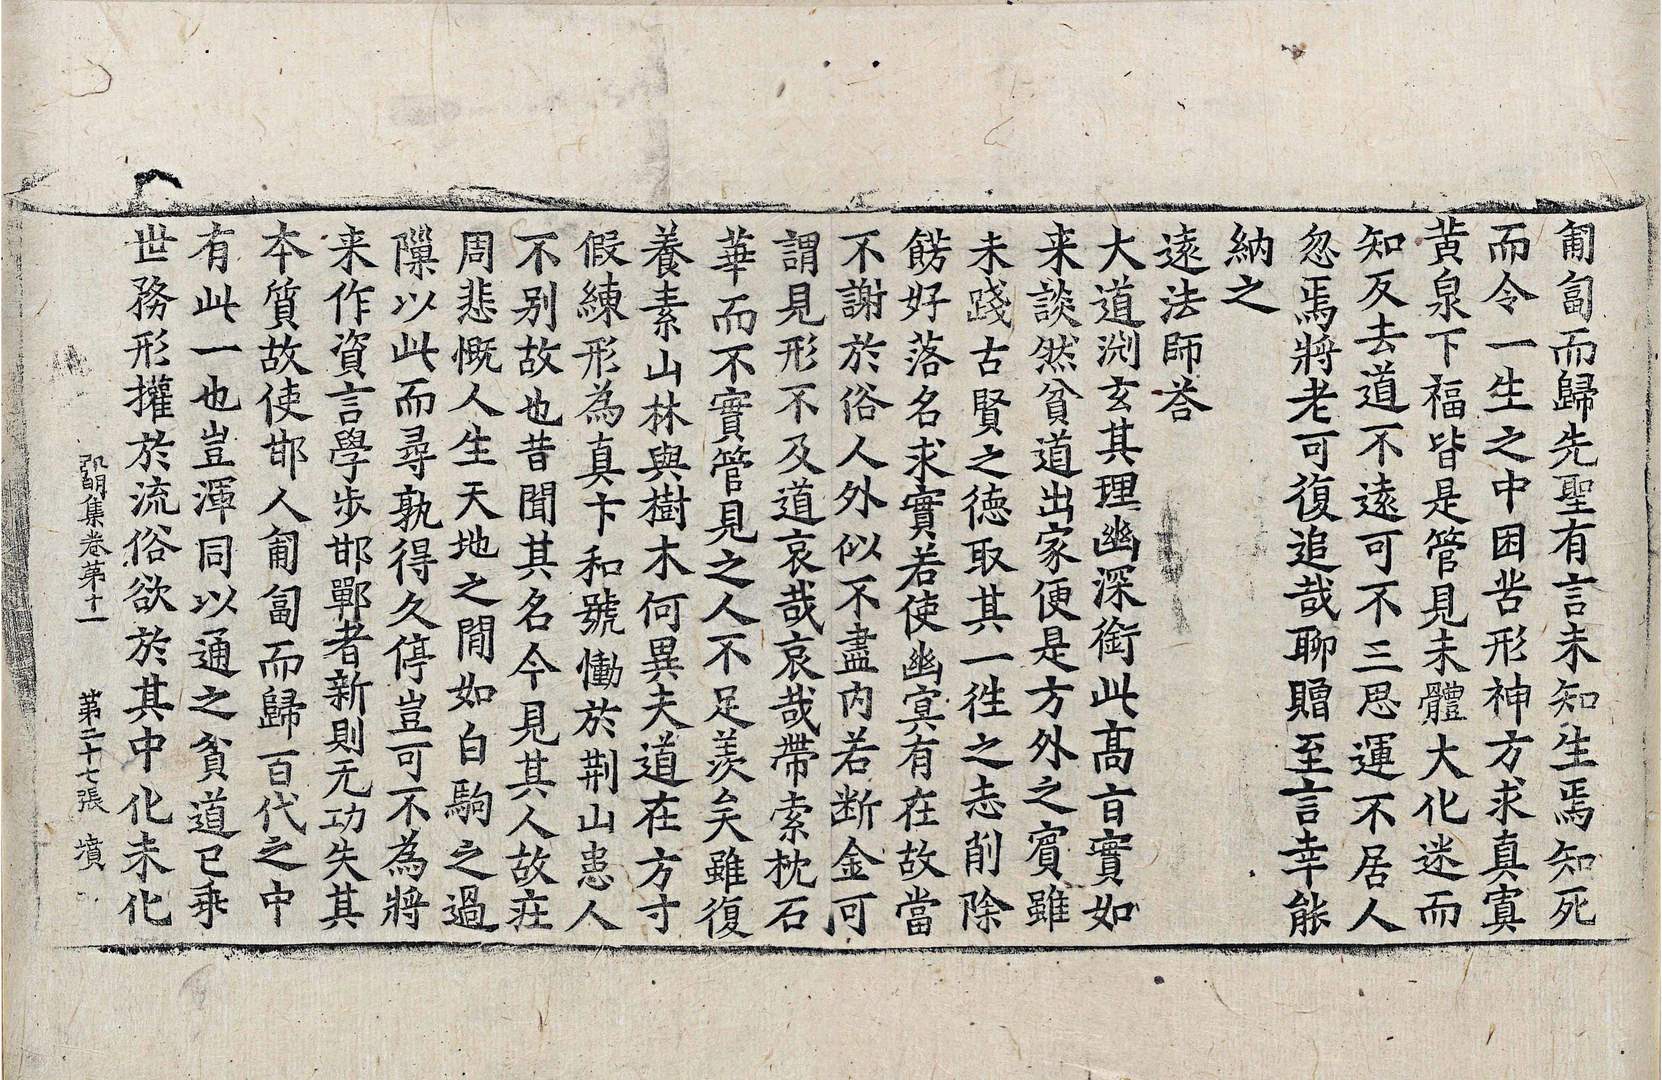 匍匐而歸先聖有言未知生焉知死
而令一生之中困苦形神方求真寘
黃泉下福皆是管見未體大化迷而
知反去道不遠可不三思運不居人
忽焉將老可復追哉聊贈至言幸能
納之
遠法師荅
大道渕玄其理幽深銜此高旨實如
来談然貧道出家便是方外之賓雖
未踐古賢之德取其一往之志削除
餝好落名求實若使幽冥有在故當
不謝於俗人外似不盡內若断金可
謂見形不及道哀哉哀哉帶索枕石
華而不實管見之人不足羨矣雖復
養素山林與樹木何異夫道在方寸
假練形為真卞和號慟於荆山患人
不别故也昔聞其名今見其人故莊
周悲慨人生天地之間如白駒之過
隟以此而尋孰得久停豈可不為將
来作資言學步邯鄲者新則无功失其
本質故使邯人匍匐而歸百代之中
有此一也豈渾同以通之貧道已乘
世務形權於流俗欲於其中化未化
弘明集卷第十一 第二十七張 墳